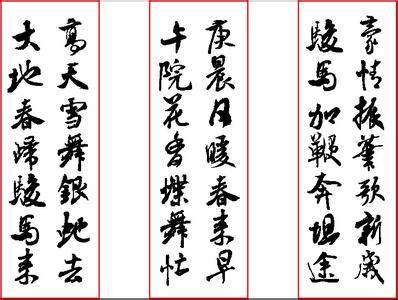 豪情振筆歌新歲
駿馬加鞭奔坦途
庚晨日暖春来早
午院花香蝶舞忙
高天雪舞銀蛇去
大地春歸駿馬来